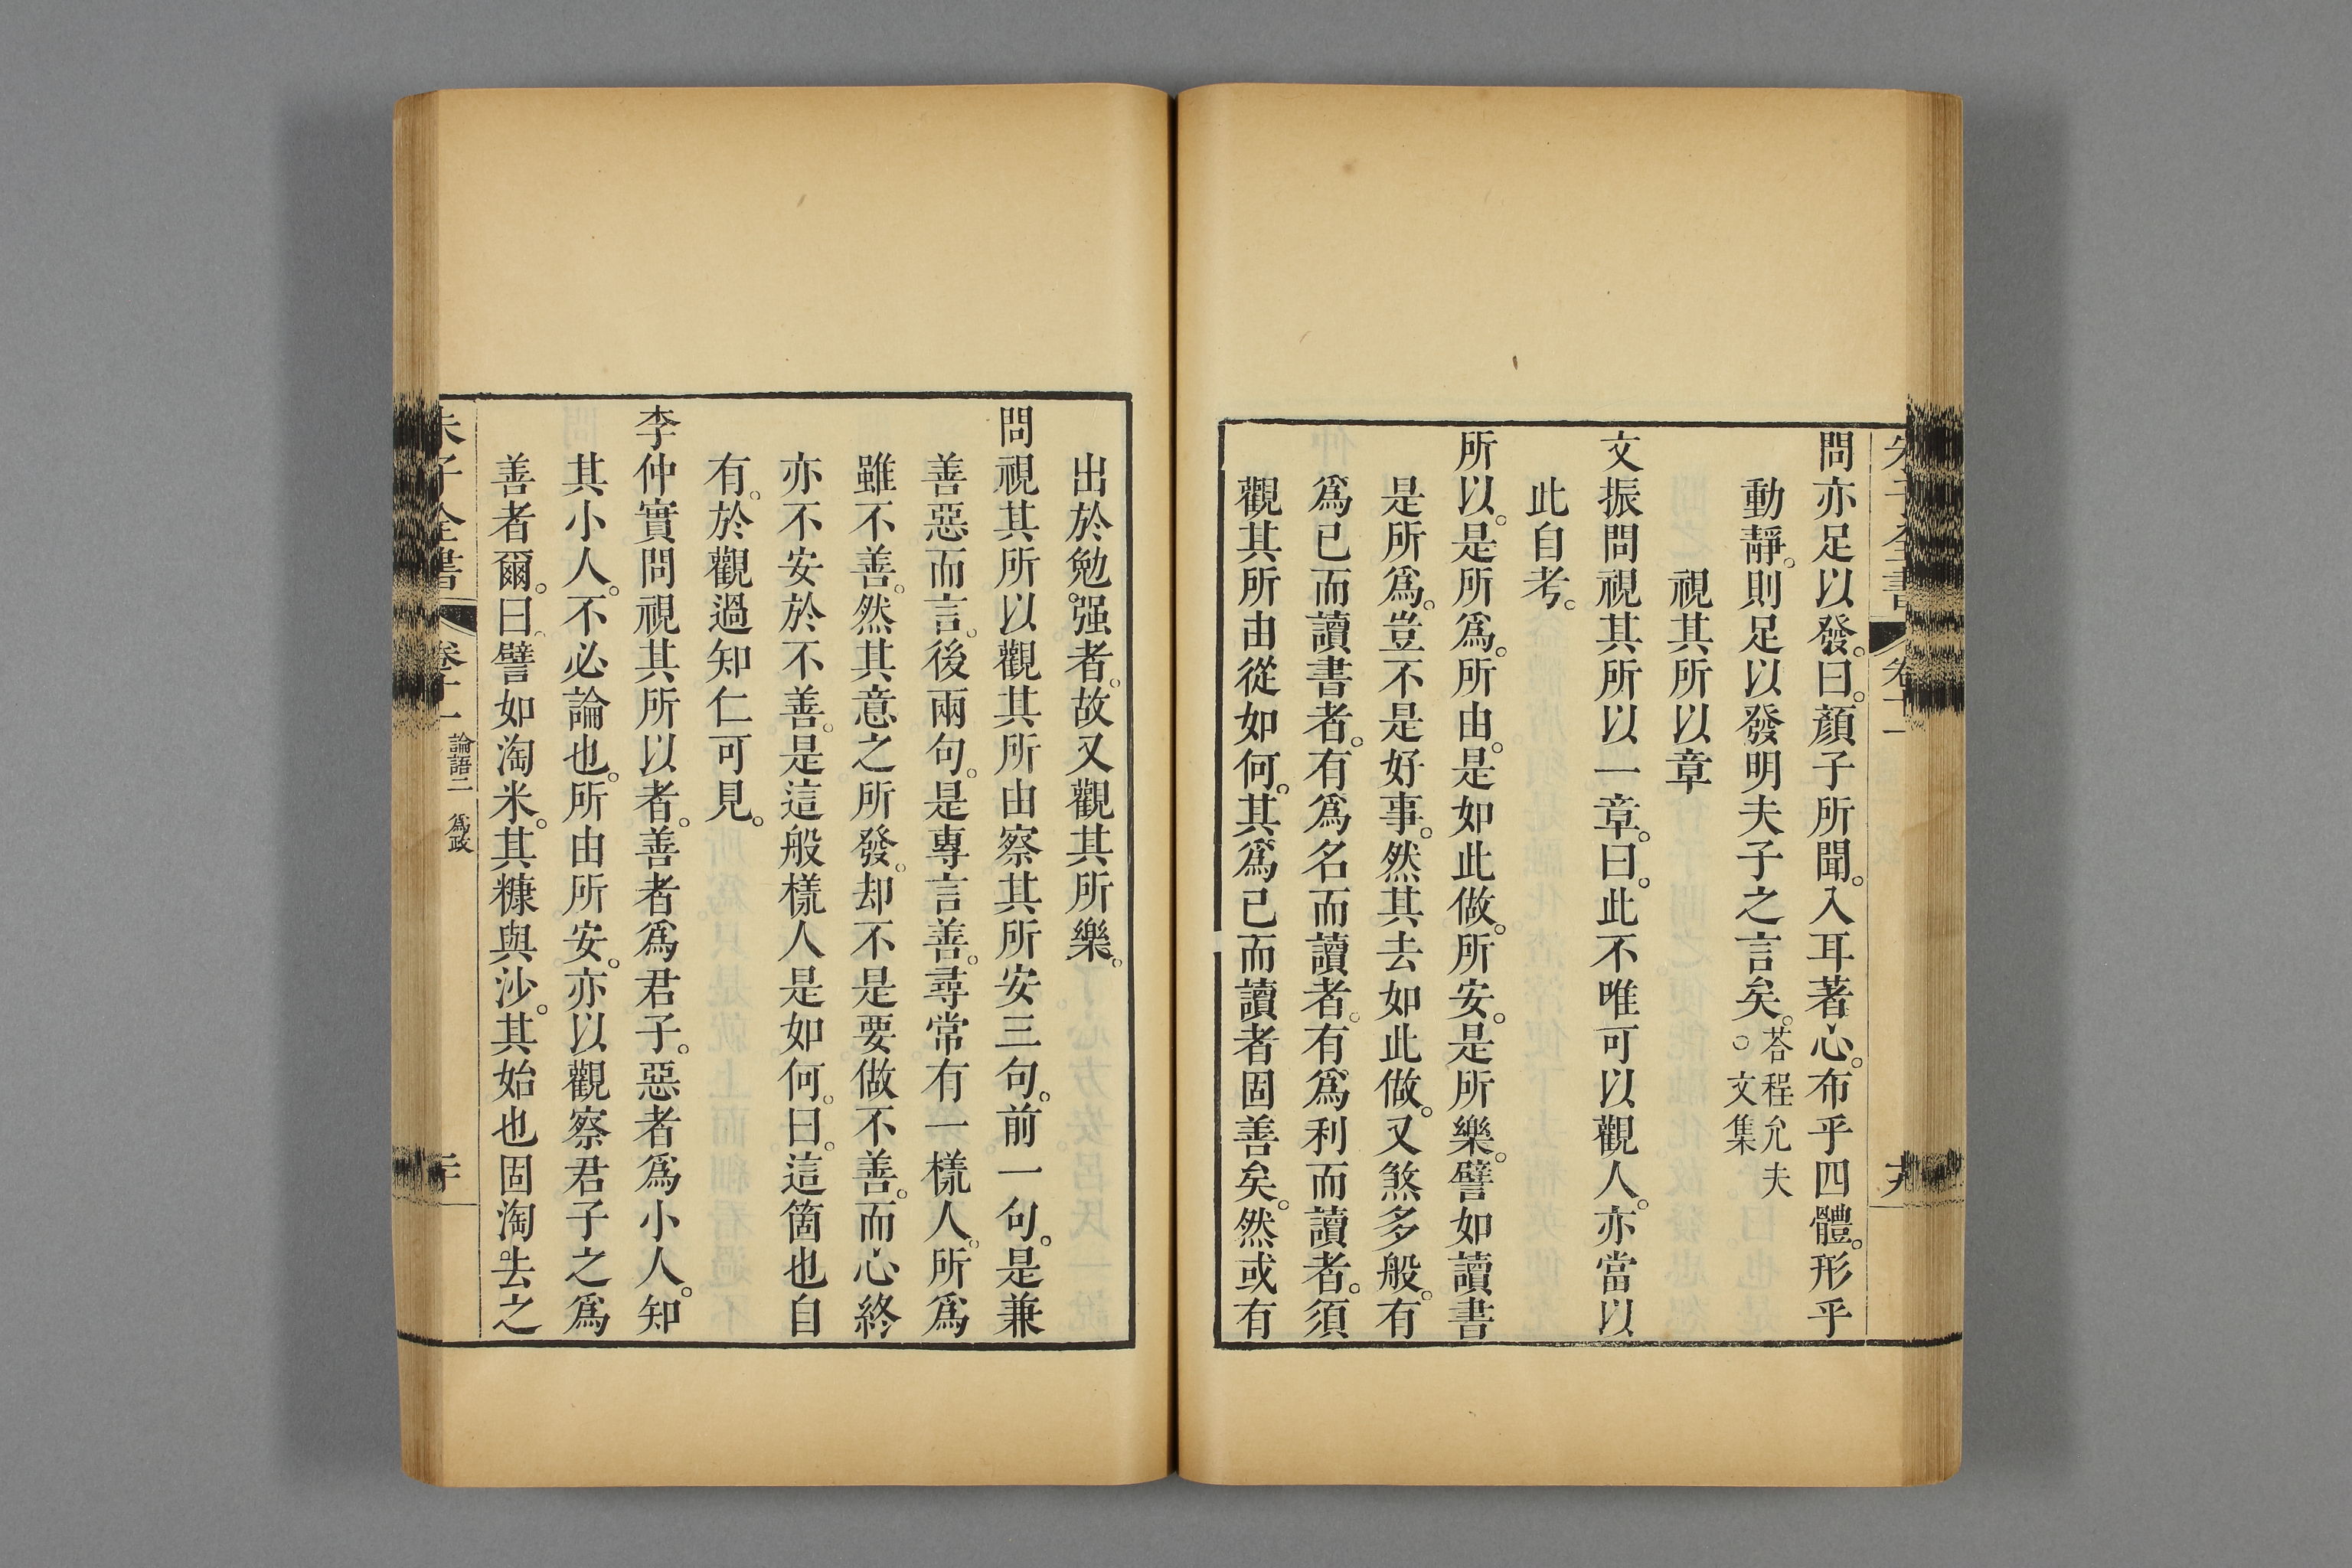 問亦足以發。曰。顏子所聞。入耳著心。布乎四體。形乎
動靜。則足以發明夫子之言矣。答程允夫。文集
視其所以章
文振問視其所以一章。曰。此不唯可以觀人。亦當以
此自考。
所以。是所爲。所由。是如此做。所安。是所樂。譬如讀書
是所爲。豈不是好事。然其去如此做。又煞多般。有
爲已而讀書者。有爲名而讀者。有爲利而讀者。須
觀其所由從如何。其爲已而讀者固善矣。然或有
出於勉强者。故又觀其所樂。
問視其所以觀其所由察其所安三句。前一句。是兼
善惡而言。後兩句。是專言善。尋常有一樣人。所爲
雖不善。然其意之所發。却不是要做不善。而心終
亦不安於不善。是這般樣人是如何。曰。這箇也自
有。於觀過知仁可見。
李仲實問視其所以者。善者爲君子。惡者爲小人。知
其小人。不必論也。所由所安。亦以觀察君子之爲
善者爾。曰。譬如淘米。其糠與沙。其始也固淘去之
朱子全書 卷十一 論語二 爲政